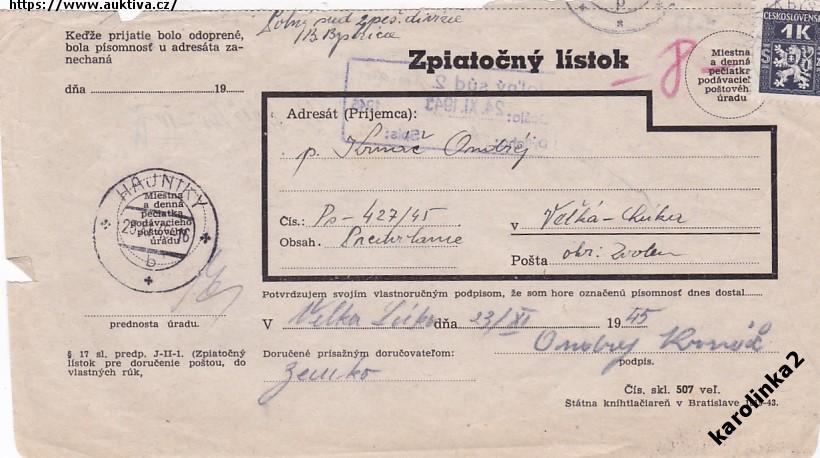 https://www.auktiva.cz/
Keďže prijatie bolo odoprené,
bola písomnosť u adresáta za-
nechaná
dňa 19
Poľný súd 2 peš. divízie
B. Bystrica
Zpiatočný lístok
- 8 -
Miestna
a denná
pečiatka
podávacieho
poštového
úradu
ČESKOSLOVENSKO
1K
Poľný súd 2.
24. XI. 1945
Adresát (Príjemca):
p. Ondrej
Čís.: Ps-427/45 v Veľká-Lúka
Obsah. Pošta okr. Zvolen
HAJNÍKY
Miestna
a denná
pečiatka
podávacieho
poštového
úradu
b
Potvrdzujem svojím vlastnoručným podpisom, že som hore označenú písomnosť dnes dostal
V Velká Lúka dňa 23/XI 1945
prednosta úradu.
Ondrej
podpis.
§ 17 sl. predp. J-II-1. (Zpiatočný
lístok pre doručenie poštou, do
vlastných rúk,
Doručené prísažným doručovateľom:
Čís. skl. 507 veľ.
Štátna knihtlačiareň v Bratislave
karolinka2